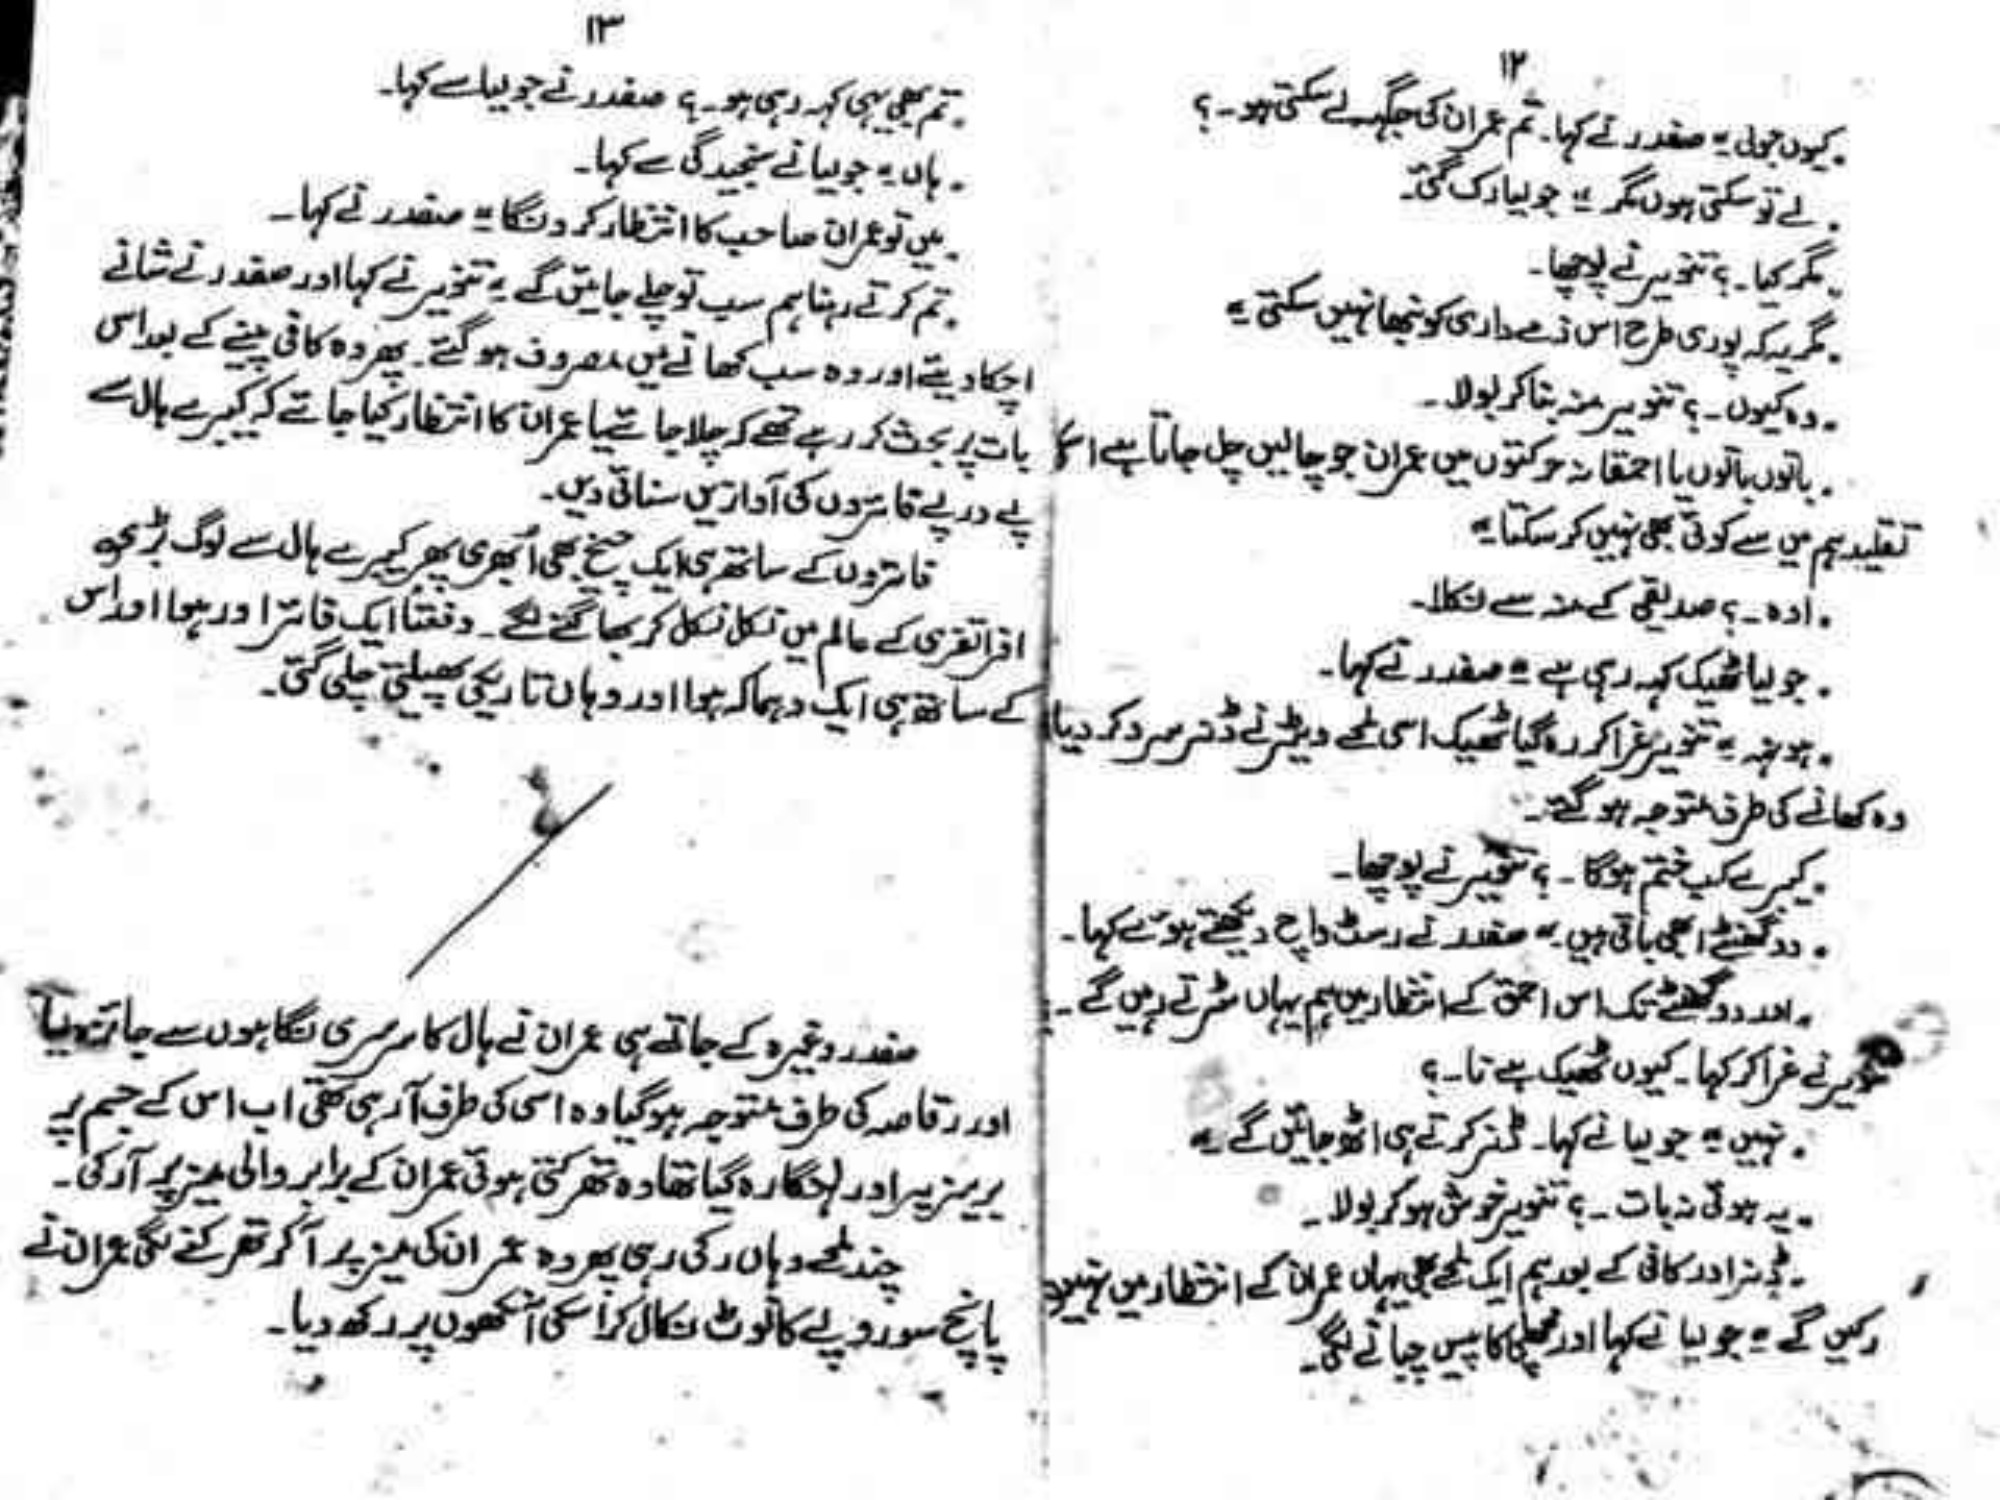 ۱۲
۔ کیوں جولی ؟ صفدر نے کہا۔ تم عمران کی جگہ لے سکتی ہو۔ ؟
۔ لے تو سکتی ہوں مگر ؟ جولیا رک گئی۔
۔ مگر کیا۔ ؟ تنویر نے پوچھا۔
۔ مگر یہ کہ پوری طرح اس ذمے داری کو نبھا نہیں سکتی ؟
۔ وہ کیوں۔ ؟ تنویر منہ بنا کر بولا۔
۔ باتوں باتوں یا احمقانہ حرکتوں میں عمران جو چالیں چل جاتا ہے اسکی
تقلید ہم میں سے کوئی بھی نہیں کر سکتا ؟
۔ اوہ۔ ؟ صدیقی کے منہ سے نکلا۔
۔ جولیا ٹھیک کہہ رہی ہے ؟ صفدر نے کہا۔
۔ ہونہہ ؟ تنویر غرا کر رہ گیا ٹھیک اسی لمحے ویٹر نے ڈنر سرو کر دیا
وہ کھانے کی طرف متوجہ ہو گئے۔
۔ کیبرے کب ختم ہوگا۔ ؟ تنویر نے پوچھا۔
۔ دو گھنٹے ابھی باقی ہیں۔ ؟ صفدر نے رسٹ واچ دیکھتے ہوئے کہا۔
۔ اور دو گھنٹے تک اس احمق کے انتظار میں ہم یہاں سڑتے رہیں گے۔
تنویر نے غرا کر کہا۔ کیوں ٹھیک ہے نا۔ ؟
۔ نہیں ؟ جولیا نے کہا۔ ڈنر کرتے ہی اٹھ جائیں گے ؟
۔ یہ ہوئی نہ بات۔ ؟ تنویر خوش ہو کر بولا۔
۔ ڈنر اور کافی کے بعد ہم ایک لمحے بھی یہاں عمران کے انتظار میں نہیں
رکیں گے ؟ جولیا نے کہا اور مچھلی کا پیس چبانے لگی۔
۱۳
۔ تم بھی یہی کہہ رہی ہو۔ ؟ صفدر نے جولیا سے کہا۔
۔ ہاں ؟ جولیا نے سنجیدگی سے کہا۔
۔ میں تو عمران صاحب کا انتظار کرونگا ؟ صفدر نے کہا۔
۔ تم کرتے رہنا ہم سب تو چلے جائیں گے ؟ تنویر نے کہا اور صفدر نے شانے
اچکا دیئے اور وہ سب کھانے میں مصروف ہو گئے۔ پھر وہ کافی پینے کے بعد اسی
بات پر بحث کر رہے تھے کہ چلا جائے یا عمران کا انتظار کیا جائے کہ کیبرے ہال سے
پے در پے فائروں کی آوازیں سنائی دیں۔
فائروں کے ساتھ ہی ایک چیخ بھی اُبھری پھر کیبرے ہال سے لوگ بڑی
افراتفری کے عالم میں نکل نکل کر بھاگنے لگے۔ دفعتاً ایک فائر اور ہوا اور اس
کے ساتھ ہی ایک دہماکہ ہوا اور وہاں تاریکی پھیلتی چلی گئی۔
صفدر وغیرہ کے جاتے ہی عمران نے ہال کا سرسری نگاہوں سے جائزہ لیا
اور رقاصہ کی طرف متوجہ ہو گیا وہ اسی کی طرف آ رہی تھی اب اس کے جسم پر
بریزیر اور لہنگا رہ گیا تھا وہ تھرکتی ہوئی عمران کے برابر والی میز پر آ رکی۔
چند لمحے وہاں رکی رہی پھر وہ عمران کی میز پر آ کر تھرکنے لگی عمران نے
پانچ سو روپے کا نوٹ نکال کر اسکی آنکھوں پر رکھ دیا۔